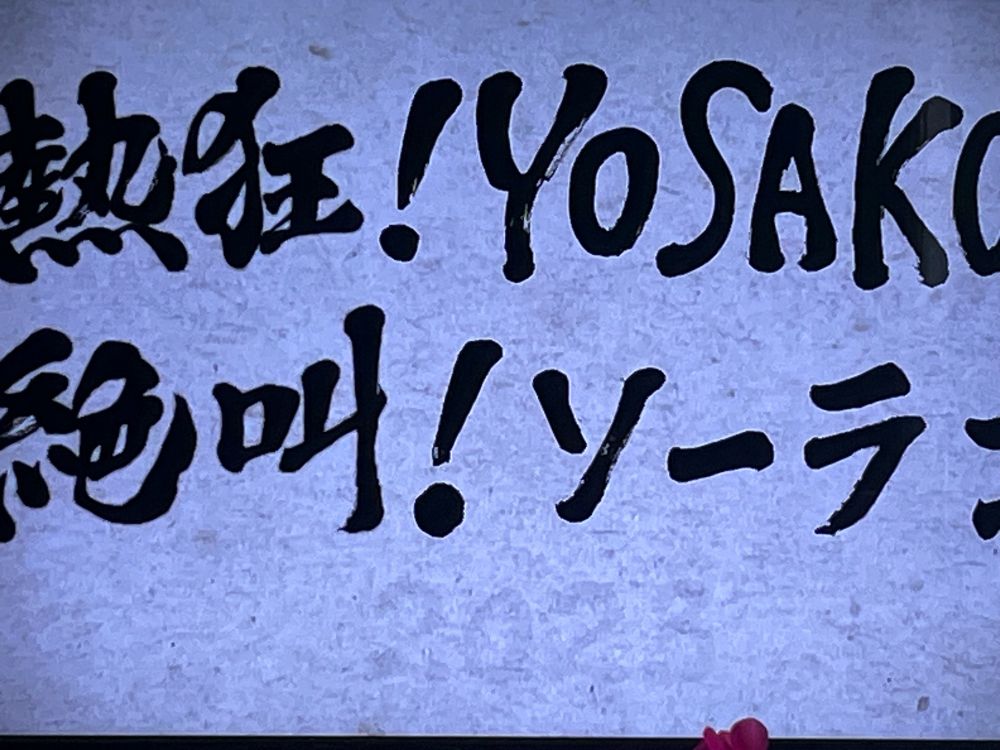 熱狂!YOSAKO
絶叫!ソーラ